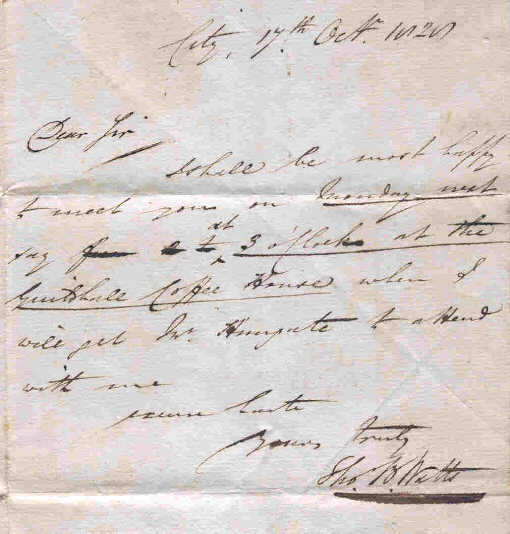 City, 17th Octr. 1828
Dear Sir
I shall be most happy
to meet you on Monday next
say at 3 o'Clock at the
Guildhall Coffee House when I
will get Mr. to attend
with me
haste
Yours truly
Thos. Watts